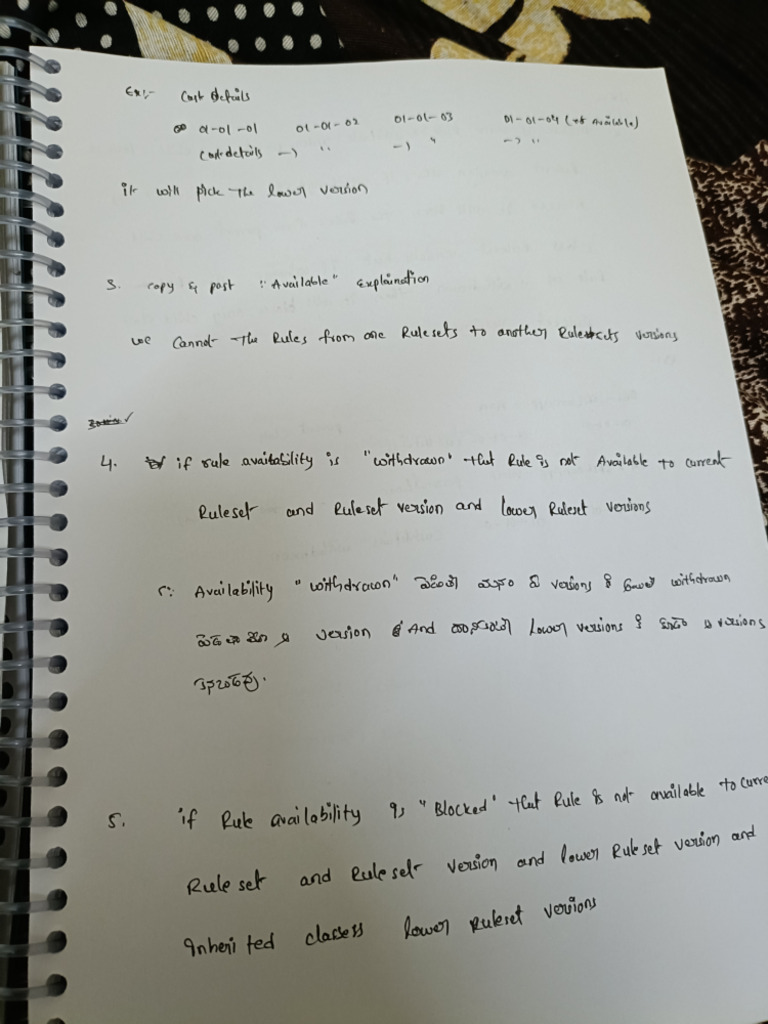 Ex:- Cart details
01-01-01 01-01-02 01-01-03 01-01-04 (not Available)
Cart details → " → " → "
it will pick the lower version
3. copy & past "Available" Explaination
we Cannot The Rules from one Rulesets to another Rulesets versions
4. if rule availability is "withdrawn" that Rule is not Available to current
Ruleset and Ruleset version and lower Ruleset versions
Availability "withdrawn" మనం ఏ versions కి withdrawn
version And lower versions కి versions
5. if Rule availability is "Blocked" that Rule is not available to curre
Rule set and Rule set version and lower Rule set version and
Inherited classess lower Ruleset versions